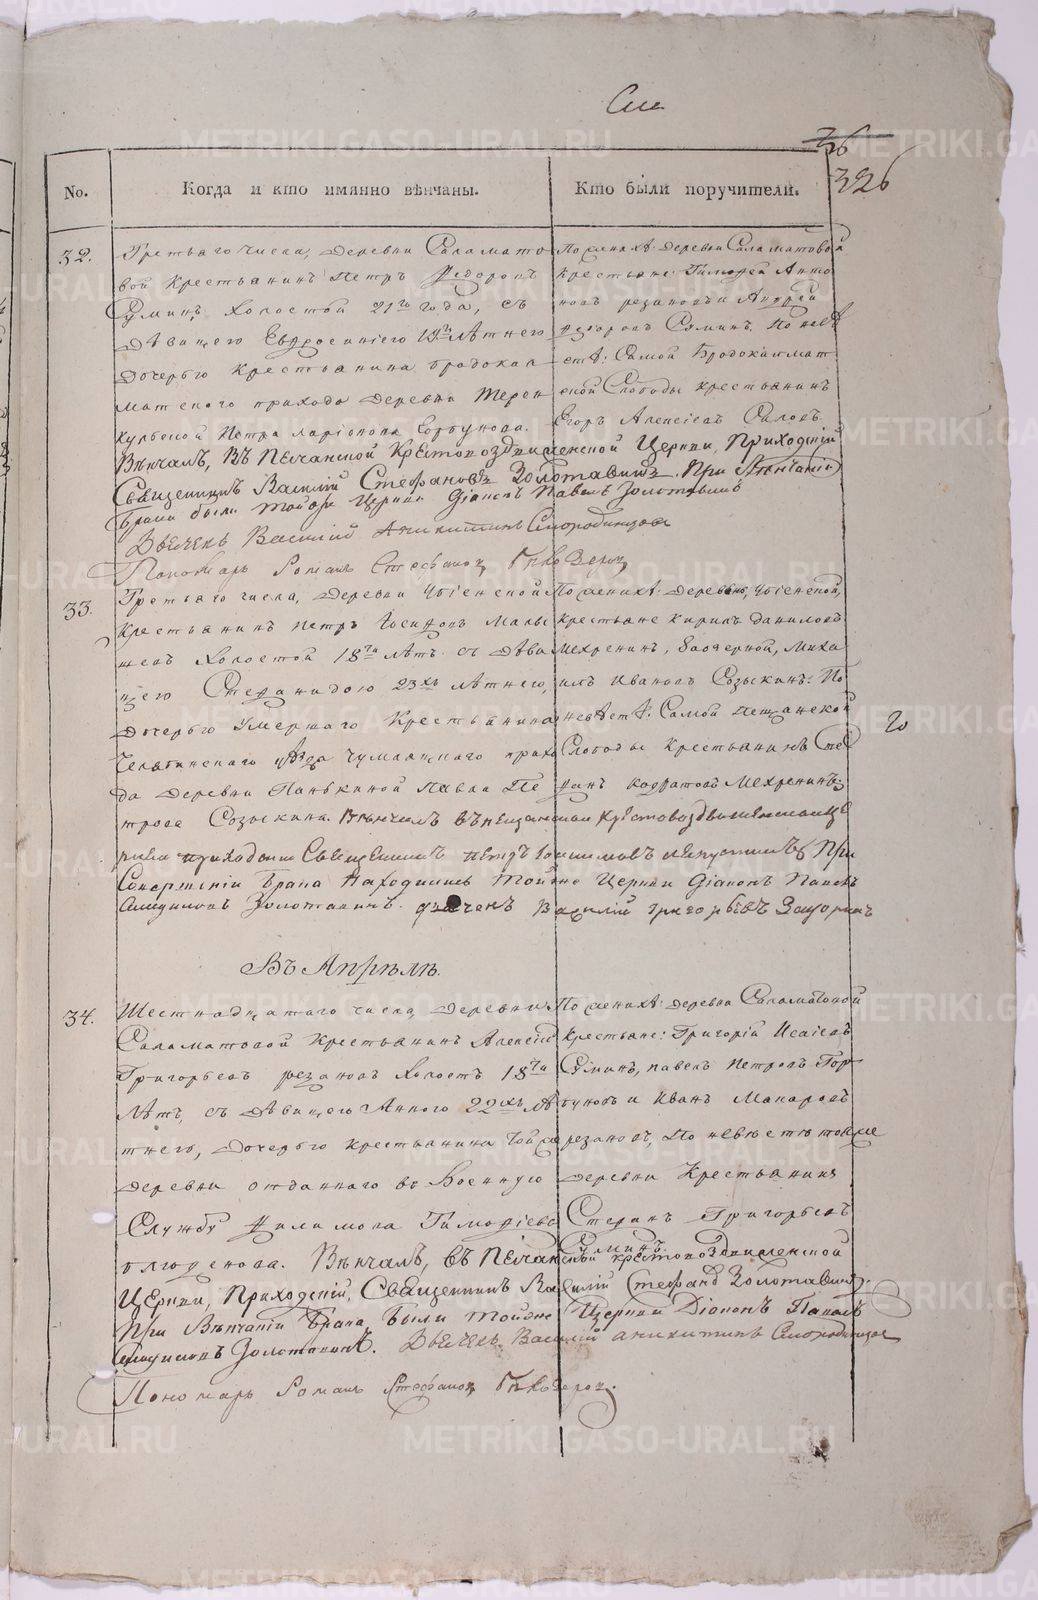 326
No.
Когда и кто имянно вѣнчаны.
Кто были поручители.
32.
Третьяго числа, деревни Саламато
вой крестьянинъ Петръ Федоровъ
Суминъ, холостой 21го года, съ
дѣвицею Евдросиніею 19ти лѣтнею
дочерью крестьянина бродокал
матского прихода деревни Терен
кульской Петра Ларіонова Горбунова.
По женихѣ: деревни Саламатовой
крестьяне: Тимофей Анто
новъ резановъ и Андрей
Федоровъ Суминъ. По невѣ
стѣ: Самой Бродокалмат
ской Слободы крестьянинъ
Егоръ Алексѣевъ
Вѣнчалъ, въ Песчанской Крестовоздвиженской Церкви, Приходскій
Священникъ Василій Стефановъ Золотавинъ. При Вѣнчаніи
Брака были тойже Церкви Діаконъ Павелъ Золотавинъ
Дьячекъ Василій Аникитинъ Смородинцовъ
Пономарь Романъ Стефановъ
33.
Третьяго числа, деревни
крестьянинъ Петръ Малы
шевъ холостой 18ти лѣтъ съ дѣви
цею Стефанидою 23хъ лѣтнею,
дочерью умершаго крестьянина
Челябинскаго уѣзда Чумляцкаго прихо
да деревни Панькиной Павла Пе
трова Созыкина.
По женихѣ: деревни
крестьяне Кирилъ Даниловъ
Мехренинъ, Миха
илъ Ивановъ Созыкинъ: По
невѣстѣ: Самой Песчанской
Слободы крестьянинъ Сте
фанъ Мехренинъ
Вѣнчалъ въ песчанской Крестовоздвиженской це
ркви приходскій Священникъ Петръ При
Совершеніи Брака Находились Тойже Церкви Діаконъ Павелъ
Золотавинъ. дьячекъ Василій григорьевъ
Въ Апрѣлѣ.
34.
Шестнадцатаго числа, деревни
Саламатовой крестьянинъ Алексѣй
Григорьевъ резановъ холостъ 18ти
лѣтъ, съ дѣвицею Анною 22хъ лѣ
тнею, дочерью крестьянина тойже
деревни отданнаго въ Военную
Службу Филимона Тимофѣева
По женихѣ: деревни Саламатовой
крестьяне: Григорій Исаіевъ
Суминъ, павелъ Петровъ Гор
буновъ и Иванъ Макаровъ
резановъ, По невѣстѣ тойже
деревни Крестьянинъ
Стефанъ Григорьевъ
Суминъ.
Вѣнчалъ, въ Песчанской крестовоздвиженской
Церкви, Приходскій, Священникъ Василій Стефановъ Золотавинъ.
При Вѣнчаніи Брака, Были тойже Церкви Діаконъ Павелъ
Золотавинъ. Дьячекъ Василій Аникитинъ Смородинцовъ
Пономарь Романъ Стефановъ